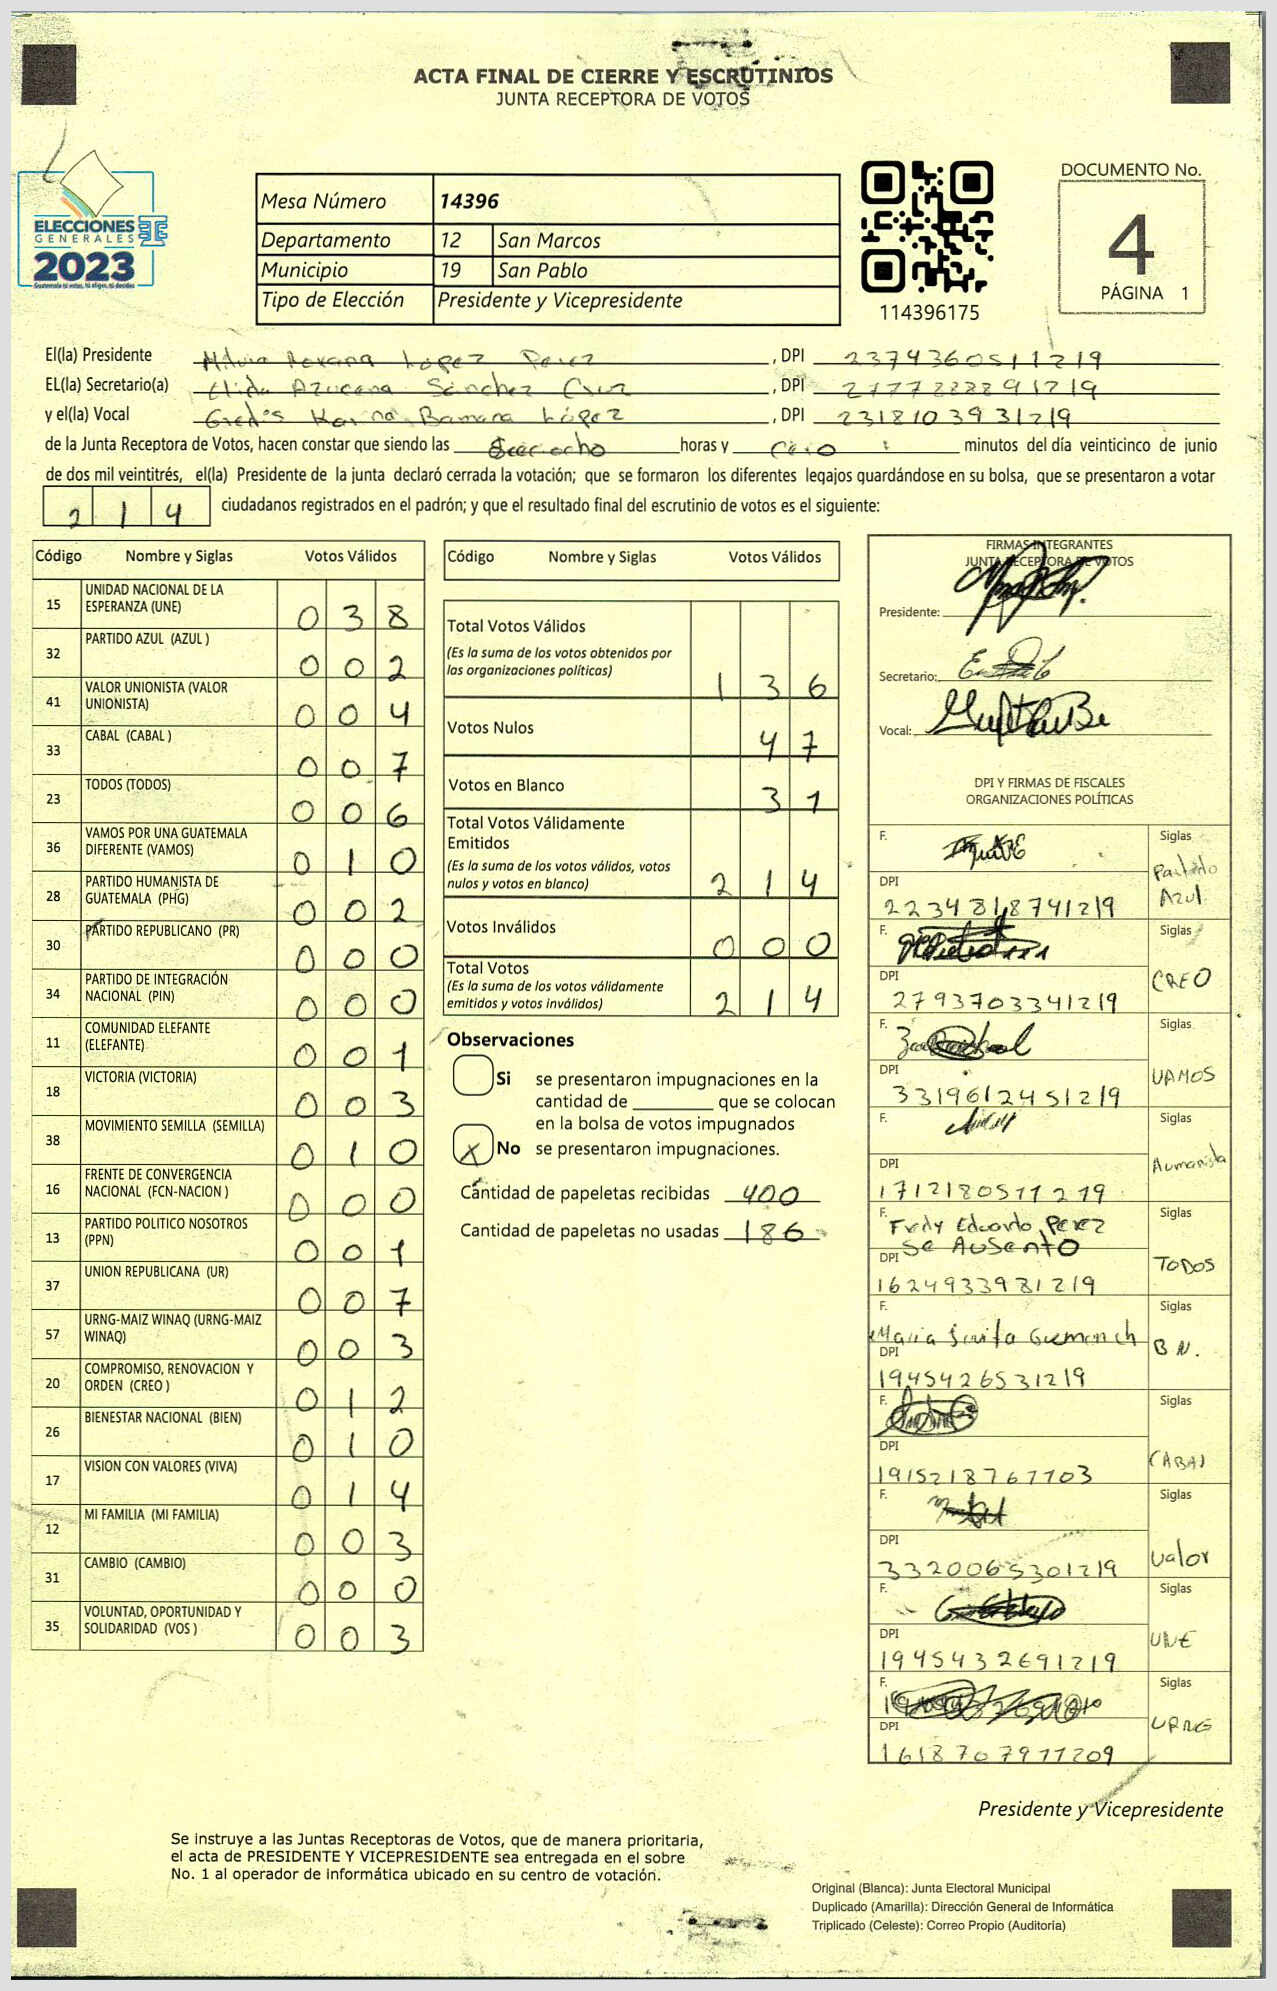 ACTA FINAL DE CIERRE Y ESCRUTINIOS
JUNTA RECEPTORA DE VOTOS
ELECCIONES
GENERALES
2023
Mesa Número 14396
Departamento 12 San Marcos
Municipio 19 San Pablo
Tipo de Elección Presidente y Vicepresidente
114396175
DOCUMENTO No.
4
PÁGINA 1
El(la) Presidente Roxana López Perez , DPI 2374360511219
EL(la) Secretario(a) Elida Azucena Sánchez Cruz , DPI
y el(la) Vocal Karina Bamaca López , DPI 2318103931219
de la Junta Receptora de Votos, hacen constar que siendo las horas y cero minutos del día veinticinco de junio
de dos mil veintitrés, el(la) Presidente de la junta declaró cerrada la votación; que se formaron los diferentes legajos guardándose en su bolsa, que se presentaron a votar
214 ciudadanos registrados en el padrón; y que el resultado final del escrutinio de votos es el siguiente:
Código Nombre y Siglas Votos Válidos
15 UNIDAD NACIONAL DE LA ESPERANZA (UNE) 038
32 PARTIDO AZUL (AZUL ) 002
41 VALOR UNIONISTA (VALOR UNIONISTA) 004
33 CABAL (CABAL ) 007
23 TODOS (TODOS) 006
36 VAMOS POR UNA GUATEMALA DIFERENTE (VAMOS) 010
28 PARTIDO HUMANISTA DE GUATEMALA (PHG) 002
30 PARTIDO REPUBLICANO (PR) 000
34 PARTIDO DE INTEGRACIÓN NACIONAL (PIN) 000
11 COMUNIDAD ELEFANTE (ELEFANTE) 001
18 VICTORIA (VICTORIA) 003
38 MOVIMIENTO SEMILLA (SEMILLA) 010
16 FRENTE DE CONVERGENCIA NACIONAL (FCN-NACION ) 000
13 PARTIDO POLITICO NOSOTROS (PPN) 001
37 UNION REPUBLICANA (UR) 007
57 URNG-MAIZ WINAQ (URNG-MAIZ WINAQ) 003
20 COMPROMISO, RENOVACION Y ORDEN (CREO ) 012
26 BIENESTAR NACIONAL (BIEN) 010
17 VISION CON VALORES (VIVA) 014
12 MI FAMILIA (MI FAMILIA) 003
31 CAMBIO (CAMBIO) 000
35 VOLUNTAD, OPORTUNIDAD Y SOLIDARIDAD (VOS ) 003
Código Nombre y Siglas Votos Válidos
Total Votos Válidos
(Es la suma de los votos obtenidos por
las organizaciones políticas) 136
Votos Nulos 47
Votos en Blanco 31
Total Votos Válidamente
Emitidos
(Es la suma de los votos válidos, votos
nulos y votos en blanco) 214
Votos Inválidos 000
Total Votos
(Es la suma de los votos válidamente
emitidos y votos inválidos) 214
Observaciones
Si se presentaron impugnaciones en la
cantidad de ________ que se colocan
en la bolsa de votos impugnados
X No se presentaron impugnaciones.
Cantidad de papeletas recibidas 400
Cantidad de papeletas no usadas 186
FIRMAS INTEGRANTES
JUNTA RECEPTORA DE VOTOS
Presidente:
Secretario:
Vocal:
DPI Y FIRMAS DE FISCALES
ORGANIZACIONES POLÍTICAS
F. Siglas
Partido
Azul
DPI
2234818741219
F. Siglas
CREO
DPI
2793703341219
F. Siglas
VAMOS
DPI
3319612451219
F. Siglas
Humanista
DPI
1712180511219
F. Siglas
Fredy Eduardo Perez
Se Ausento
TODOS
DPI
1624933981219
F. Siglas
Maria
B N.
DPI
1945426531219
F. Siglas
CABAL
DPI
1915218761103
F. Siglas
Valor
DPI
3320065301219
F. Siglas
UNE
DPI
1945432691219
F. Siglas
URNG
DPI
1618707971209
Presidente y Vicepresidente
Se instruye a las Juntas Receptoras de Votos, que de manera prioritaria,
el acta de PRESIDENTE Y VICEPRESIDENTE sea entregada en el sobre
No. 1 al operador de informática ubicado en su centro de votación.
Original (Blanca): Junta Electoral Municipal
Duplicado (Amarilla): Dirección General de Informática
Triplicado (Celeste): Correo Propio (Auditoría)